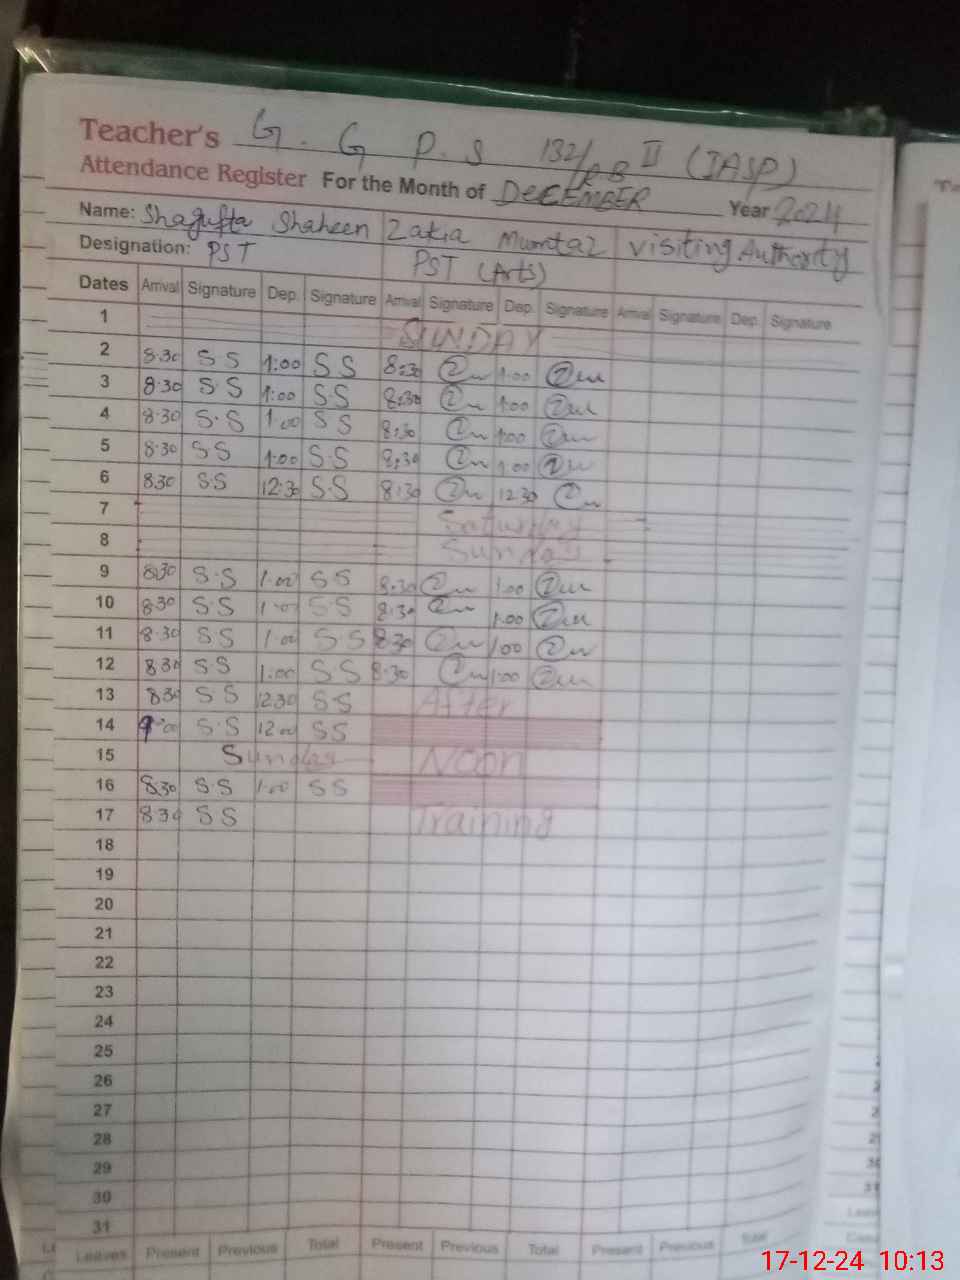 Teacher's G. G P.S 132/ II (IASP)
Attendance Register For the Month of DECEMBER Year 2024
Name: Shagufta Shaheen Zakia Mumtaz Visiting Authority
Designation: PST PST (Arts)
Dates Arrival Signature Dep. Signature Arrival Signature Dep. Signature Arrival Signature Dep. Signature
1 SUNDAY
2 8.30 SS 1:00 SS 8:30 1.00
3 8.30 S.S 1:00 S.S 8:30 1.00
4 8.30 S.S 1.00 SS 8:30 1.00
5 8.30 SS 1:00 S.S 8:30 1.00
6 830 S.S 12:30 S.S 8:30 12 30
7 Saturday
8 Sunday
9 8:30 S.S 1.00 SS 8.30 1.00
10 8.30 S.S 1.00 S.S 8:30 1.00
11 8.30 SS 1.00 SS 8.30 1.00
12 8.30 S.S 1:00 SS 8.30 1:00
13 830 SS 1230 SS After
14 9:00 S.S 12.00 SS
15 Sunday Noon
16 8.30 S.S 1.00 SS
17 8.30 SS Training
18
19
20
21
22
23
24
25
26
27
28
29
30
31
Leaves Present Previous Total Present Previous Total Present Previous Total
17-12-24 10:13